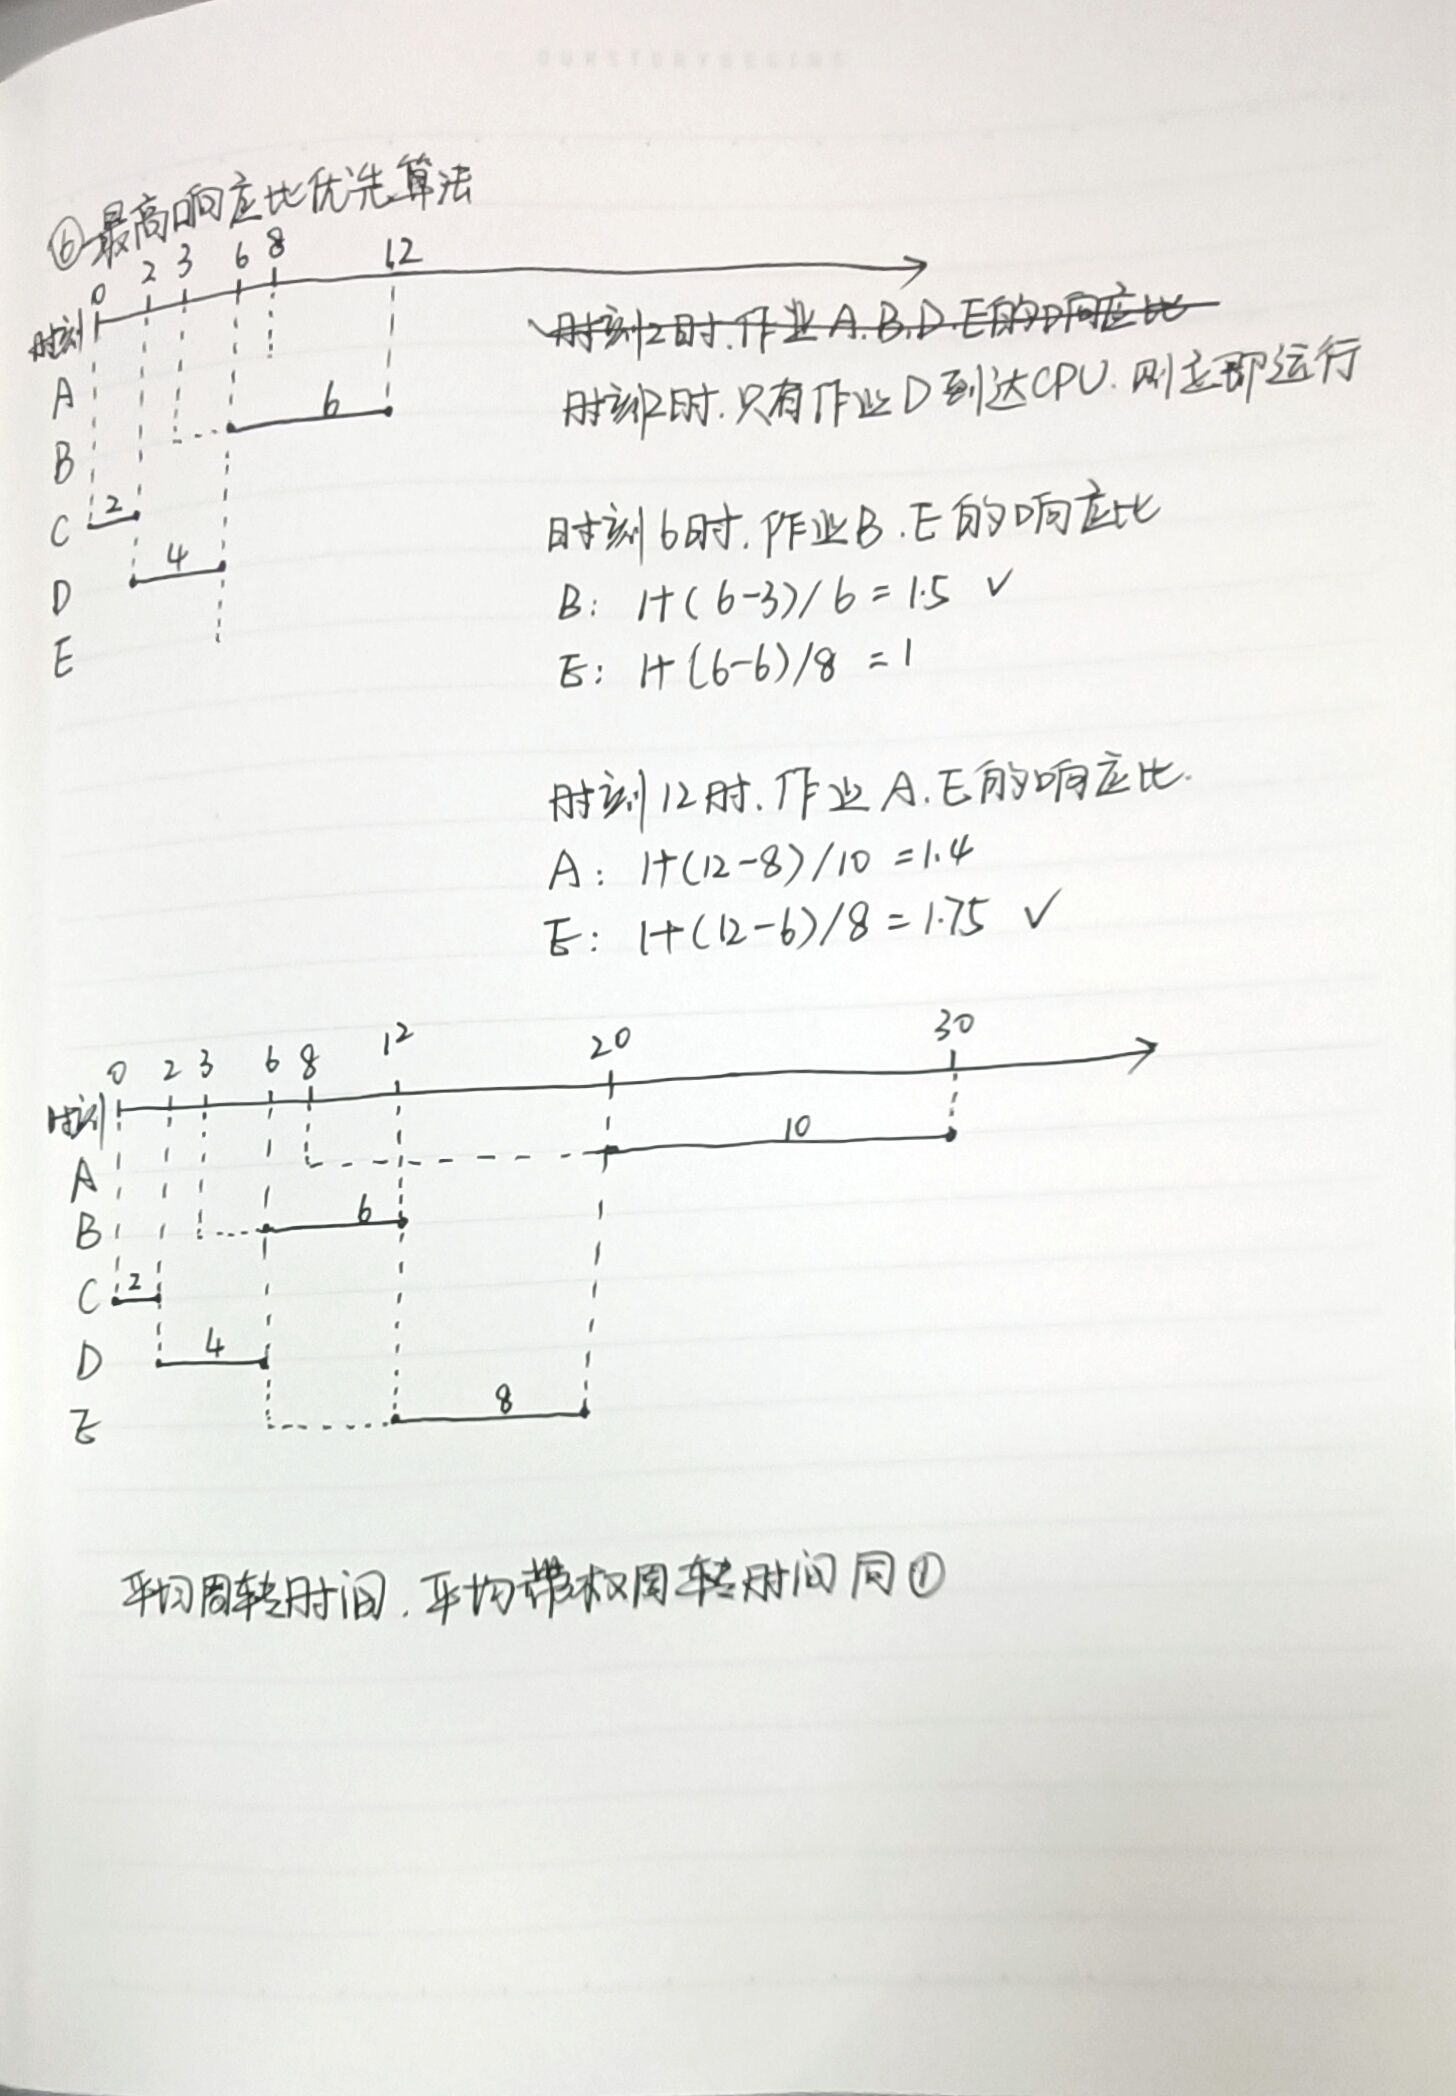 OURSTORYBEGINS
⑥最高响应比优先算法
0 2 3 6 8 12
时刻
A
B
C
D
E
6
2
4
时刻2时.作业A.B.D.E的响应比
时刻2时.只有作业D到达CPU.则立即运行
时刻6时.作业B.E的响应比
B: 1+(6-3)/6=1.5 ✓
E: 1+(6-6)/8=1
时刻12时.作业A.E的响应比.
A: 1+(12-8)/10=1.4
E: 1+(12-6)/8=1.75 ✓
0 2 3 6 8 12 20 30
时刻
A 10
B 6
C 2
D 4
E 8
平均周转时间.平均带权周转时间同①